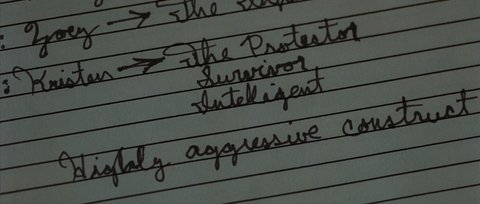 : Zoey → The
: Kristen → The Protector
Survivor
Intelligent
Highly aggressive construct